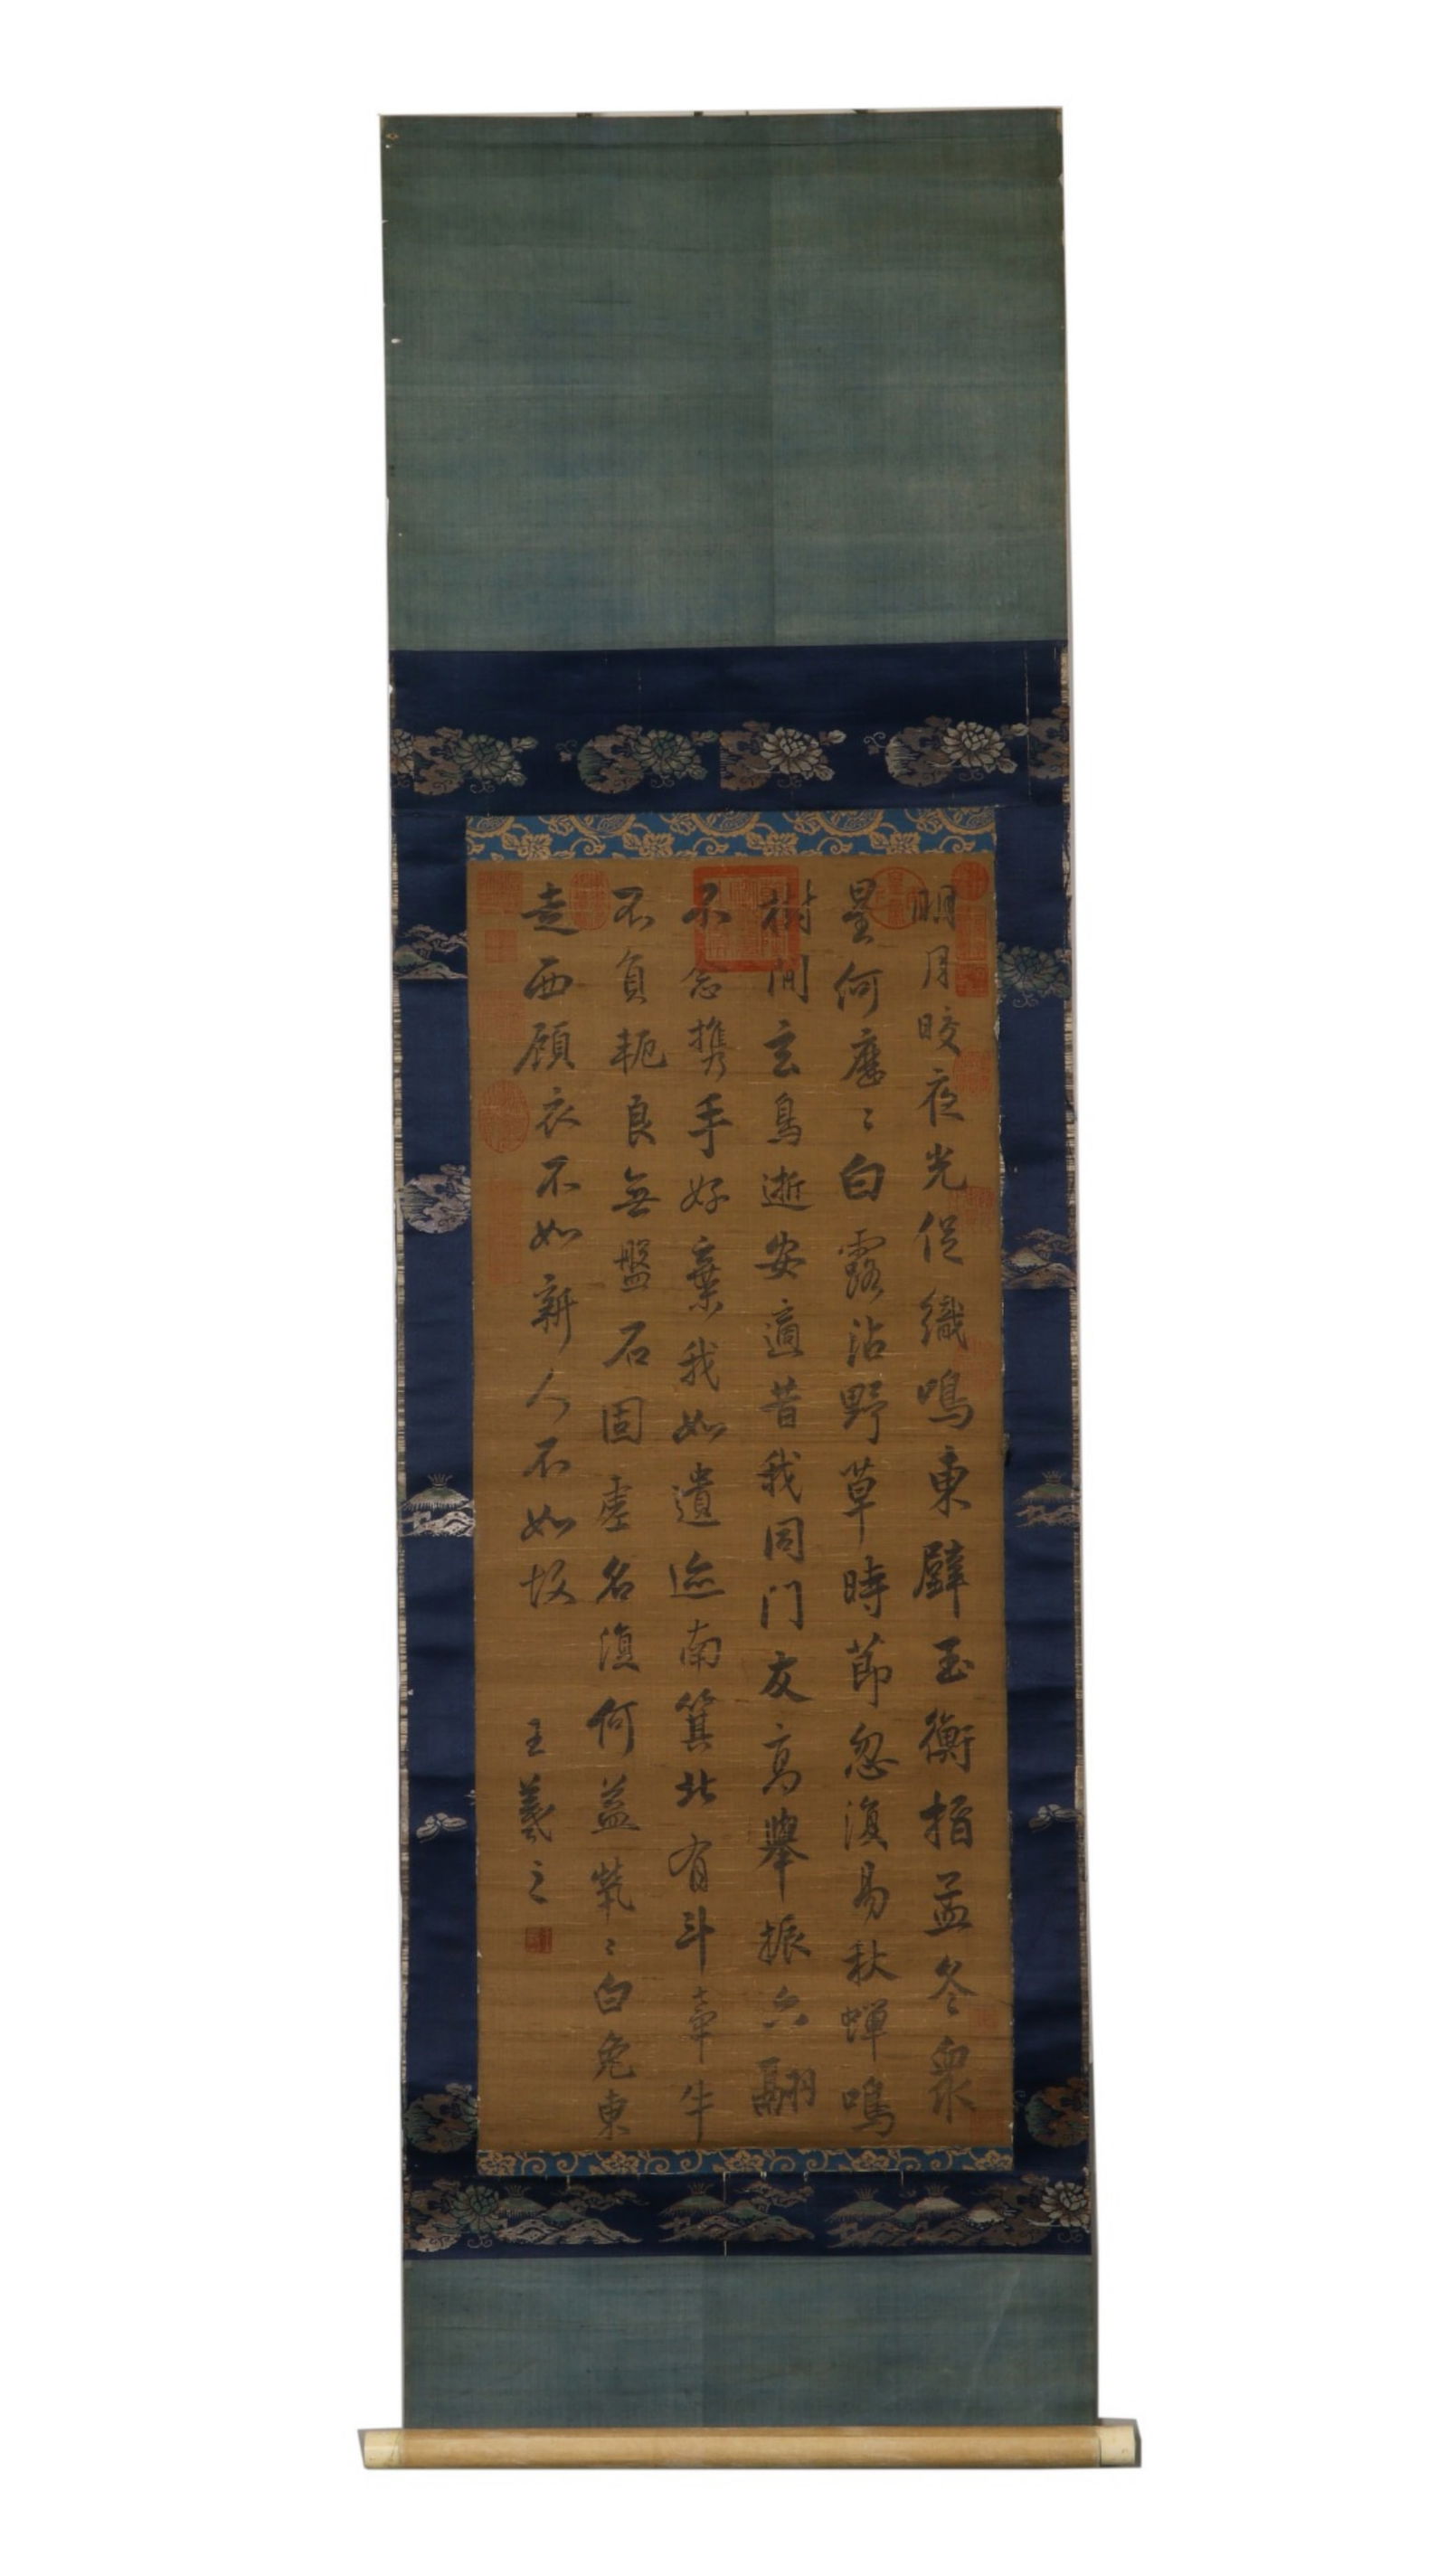 明月皎夜光促織鳴東壁玉衡指孟冬衆
星何歷〻白露沾野草時節忽復易秋蟬鳴
樹間玄鳥逝安適昔我同門友高舉振六翮
不念攜手好棄我如遺迹南箕北有斗牽牛
不負軛良無盤石固虛名復何益煢〻白兔東
走西顧衣不如新人不如故
王羲之